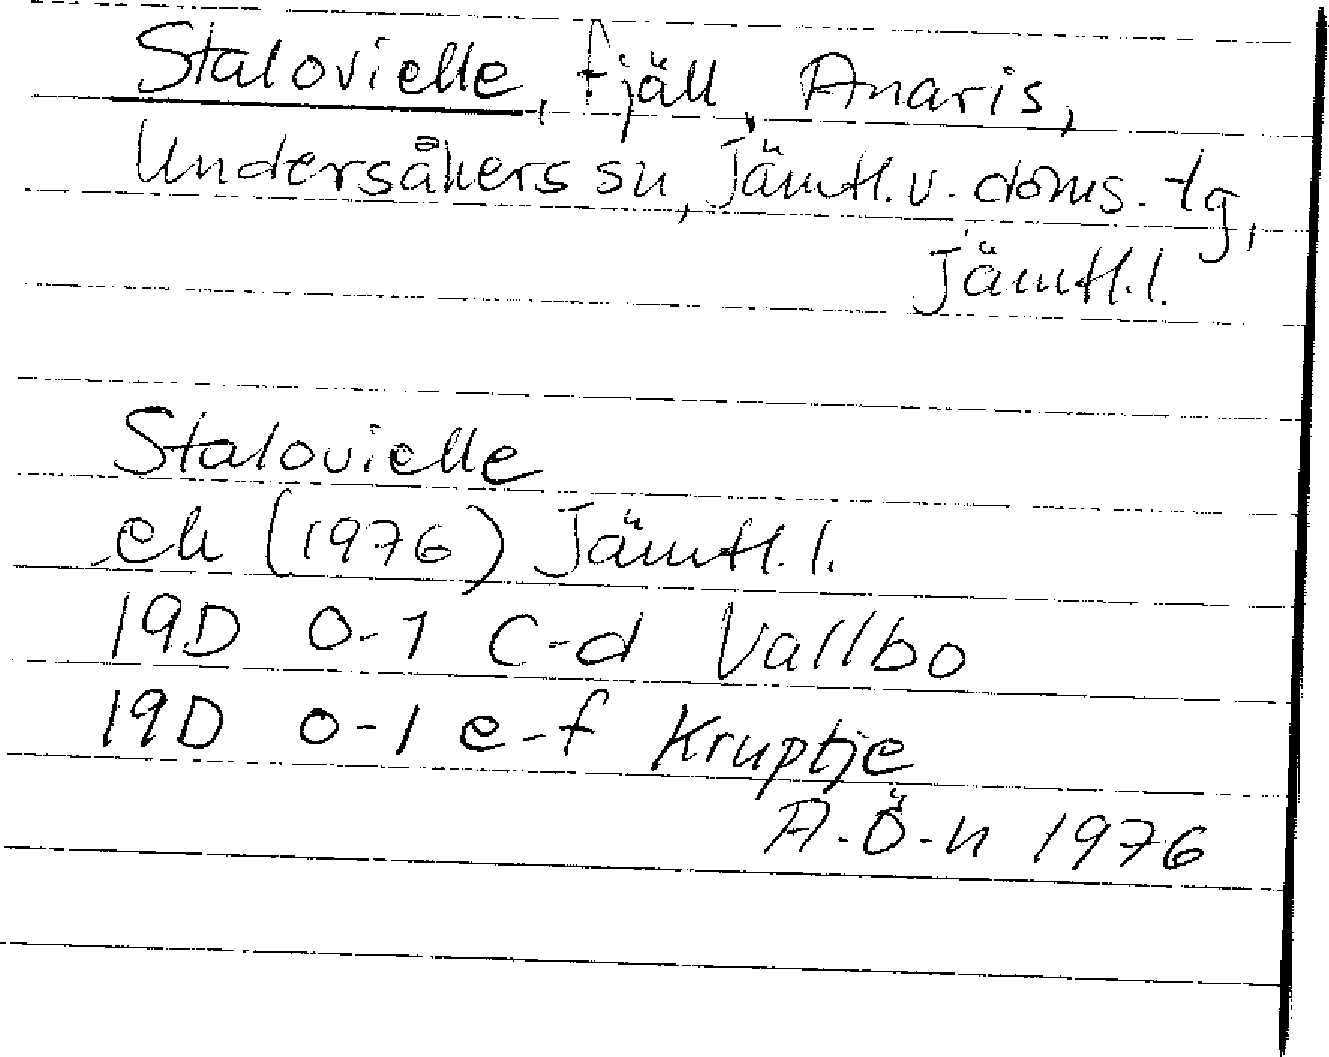 Stalovielle, fjäll, Anaris,
Undersåkers sn, Jämtl. v. doms. tg,
Jämtl. l.
Stalovielle
ek (1976) Jämtl. l.
19D 0-1 c-d Vallbo
19D 0-1 e-f Kruptje
A.Ö-n 1976